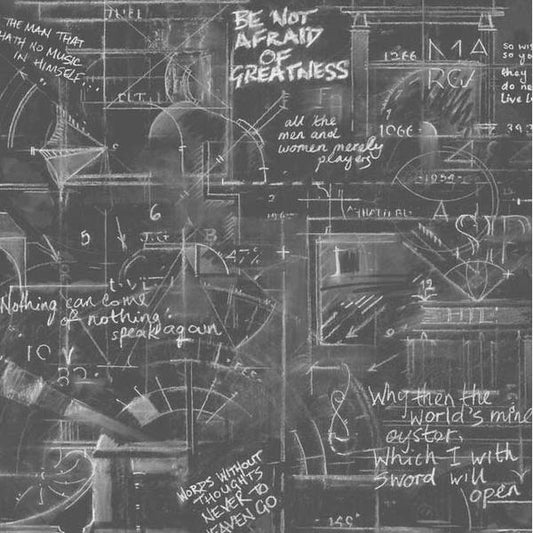 THE MAN THAT
HATH NO MUSIC
IN HIMSELF...
BE NOT
AFRAID
OF
GREATNESS
all the
men and
women merely
players
1266
MA
RG
so
so yo
they
do ne
Live l
1066
343
1234
2
A
6
5
B
47%
12
9
Nothing can come
of nothing:
speak again
10
30
Why then the
world's mine
oyster,
Which I with
Sword will
open
WORDS WITHOUT
THOUGHTS
NEVER TO
HEAVEN GO
149°